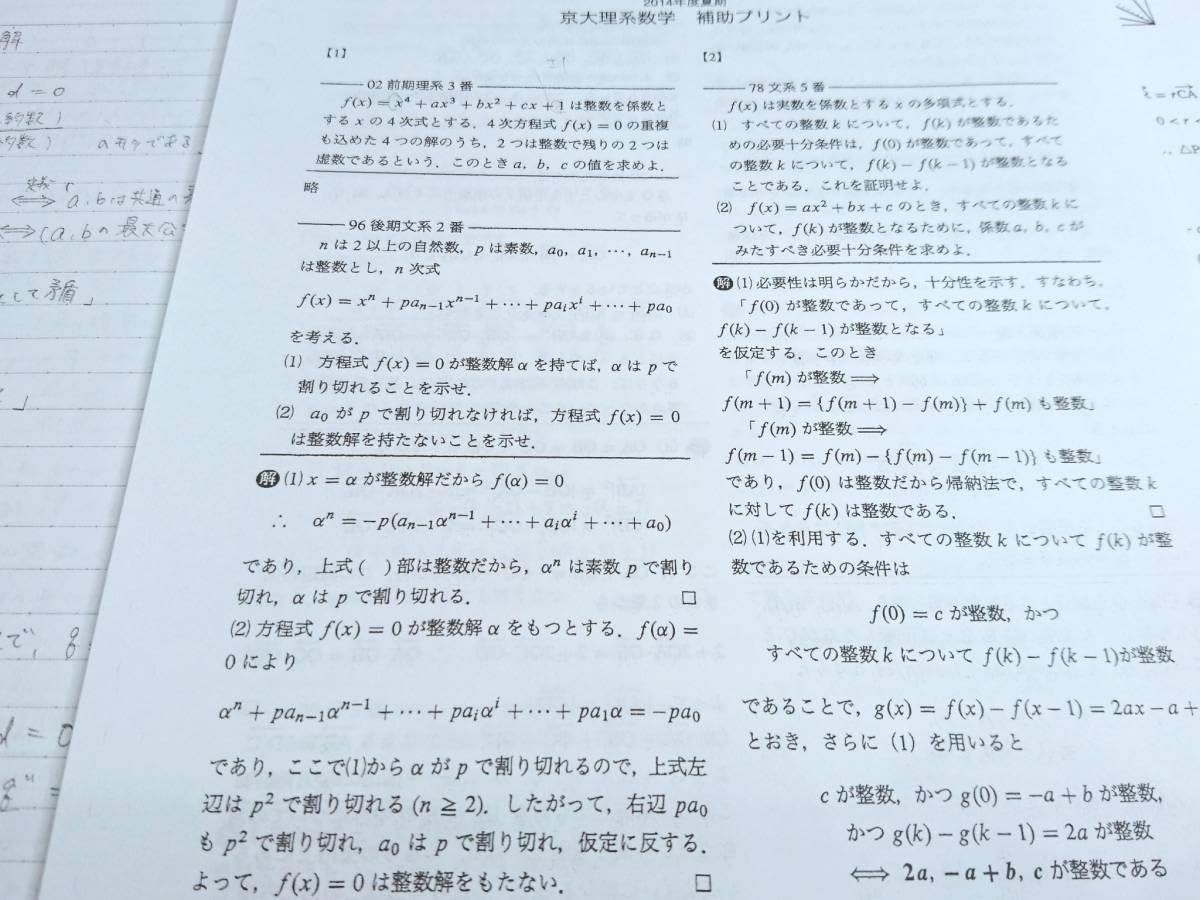 2014年度夏期
京大理系数学 補助プリント
【1】
02 前期理系 3 番
f(x) = x⁴ + ax³ + bx² + cx + 1 は整数を係数と
する x の 4 次式とする．4 次方程式 f(x) = 0 の重複
も込めた 4 つの解のうち，2 つは整数で残りの 2 つは
虚数であるという．このとき a，b，c の値を求めよ．
略
96 後期文系 2 番
n は 2 以上の自然数，p は素数，a₀，a₁，…，aₙ₋₁
は整数とし，n 次式
f(x) = xⁿ + paₙ₋₁xⁿ⁻¹ + ⋯ + paᵢxⁱ + ⋯ + pa₀
を考える．
(1) 方程式 f(x) = 0 が整数解 α を持てば，α は p で
割り切れることを示せ．
(2) a₀ が p で割り切れなければ，方程式 f(x) = 0
は整数解を持たないことを示せ．
解 (1) x = α が整数解だから f(α) = 0
∴ αⁿ = −p(aₙ₋₁αⁿ⁻¹ + ⋯ + aᵢαⁱ + ⋯ + a₀)
であり，上式 ( ) 部は整数だから，αⁿ は素数 p で割り
切れ，α は p で割り切れる． □
(2) 方程式 f(x) = 0 が整数解 α をもつとする．f(α) =
0 により
αⁿ + paₙ₋₁αⁿ⁻¹ + ⋯ + paᵢαⁱ + ⋯ + pa₁α = −pa₀
であり，ここで(1)から α が p で割り切れるので，上式左
辺は p² で割り切れる (n ≧ 2)．したがって，右辺 pa₀
も p² で割り切れ，a₀ は p で割り切れ，仮定に反する．
よって，f(x) = 0 は整数解をもたない． □
【2】
78 文系 5 番
f(x) は実数を係数とする x の多項式とする．
(1) すべての整数 k について，f(k) が整数であるた
めの必要十分条件は，f(0) が整数であって，すべて
の整数 k について，f(k) − f(k − 1) が整数となる
ことである．これを証明せよ．
(2) f(x) = ax² + bx + c のとき，すべての整数 k に
ついて，f(k) が整数となるために，係数 a，b，c が
みたすべき必要十分条件を求めよ．
解 (1) 必要性は明らかだから，十分性を示す．すなわち，
「f(0) が整数であって，すべての整数 k について，
f(k) − f(k − 1) が整数となる」
を仮定する．このとき
「f(m) が整数 ⟹
f(m + 1) = {f(m + 1) − f(m)} + f(m) も整数」
「f(m) が整数 ⟹
f(m − 1) = f(m) − {f(m) − f(m − 1)} も整数」
であり，f(0) は整数だから帰納法で，すべての整数 k
に対して f(k) は整数である． □
(2) (1)を利用する．すべての整数 k について f(k) が整
数であるための条件は
f(0) = c が整数，かつ
すべての整数 k について f(k) − f(k − 1)が整数
であることで，g(x) = f(x) − f(x − 1) = 2ax − a +
とおき，さらに (1) を用いると
c が整数，かつ g(0) = −a + b が整数，
かつ g(k) − g(k − 1) = 2a が整数
⟺ 2a，−a + b，c が整数である
解
d = 0
約数）
のモノである
定義 r
⟺ a，bは共通の
⟺ (a，bの最大公
として矛盾」
で，g
d = 0
0 < r